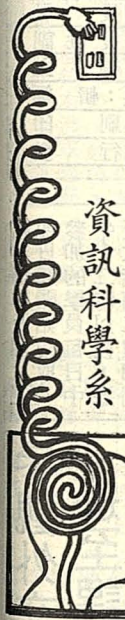 資訊科學系